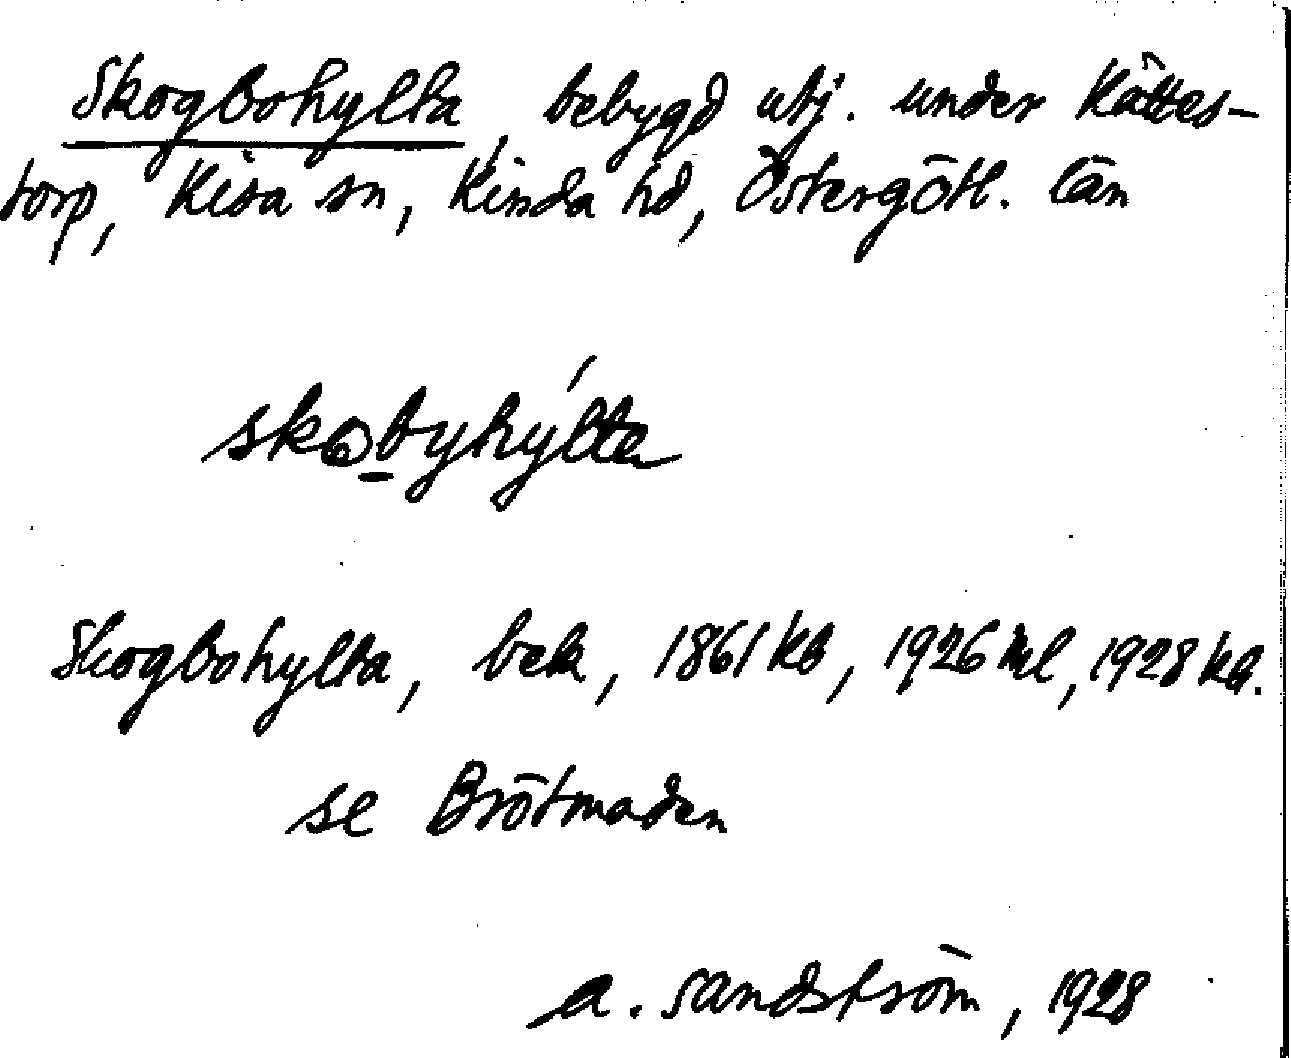 Skogbohylta, bebygd utj. under Kättes-
torp, Kisa sn, Kinda hd, Östergötl. län
skobyhýlta
Skogbohylta, bek, 1861 kb, 1926 ml, 1928 kb.
se Brötmaden
A. Sandström, 1928